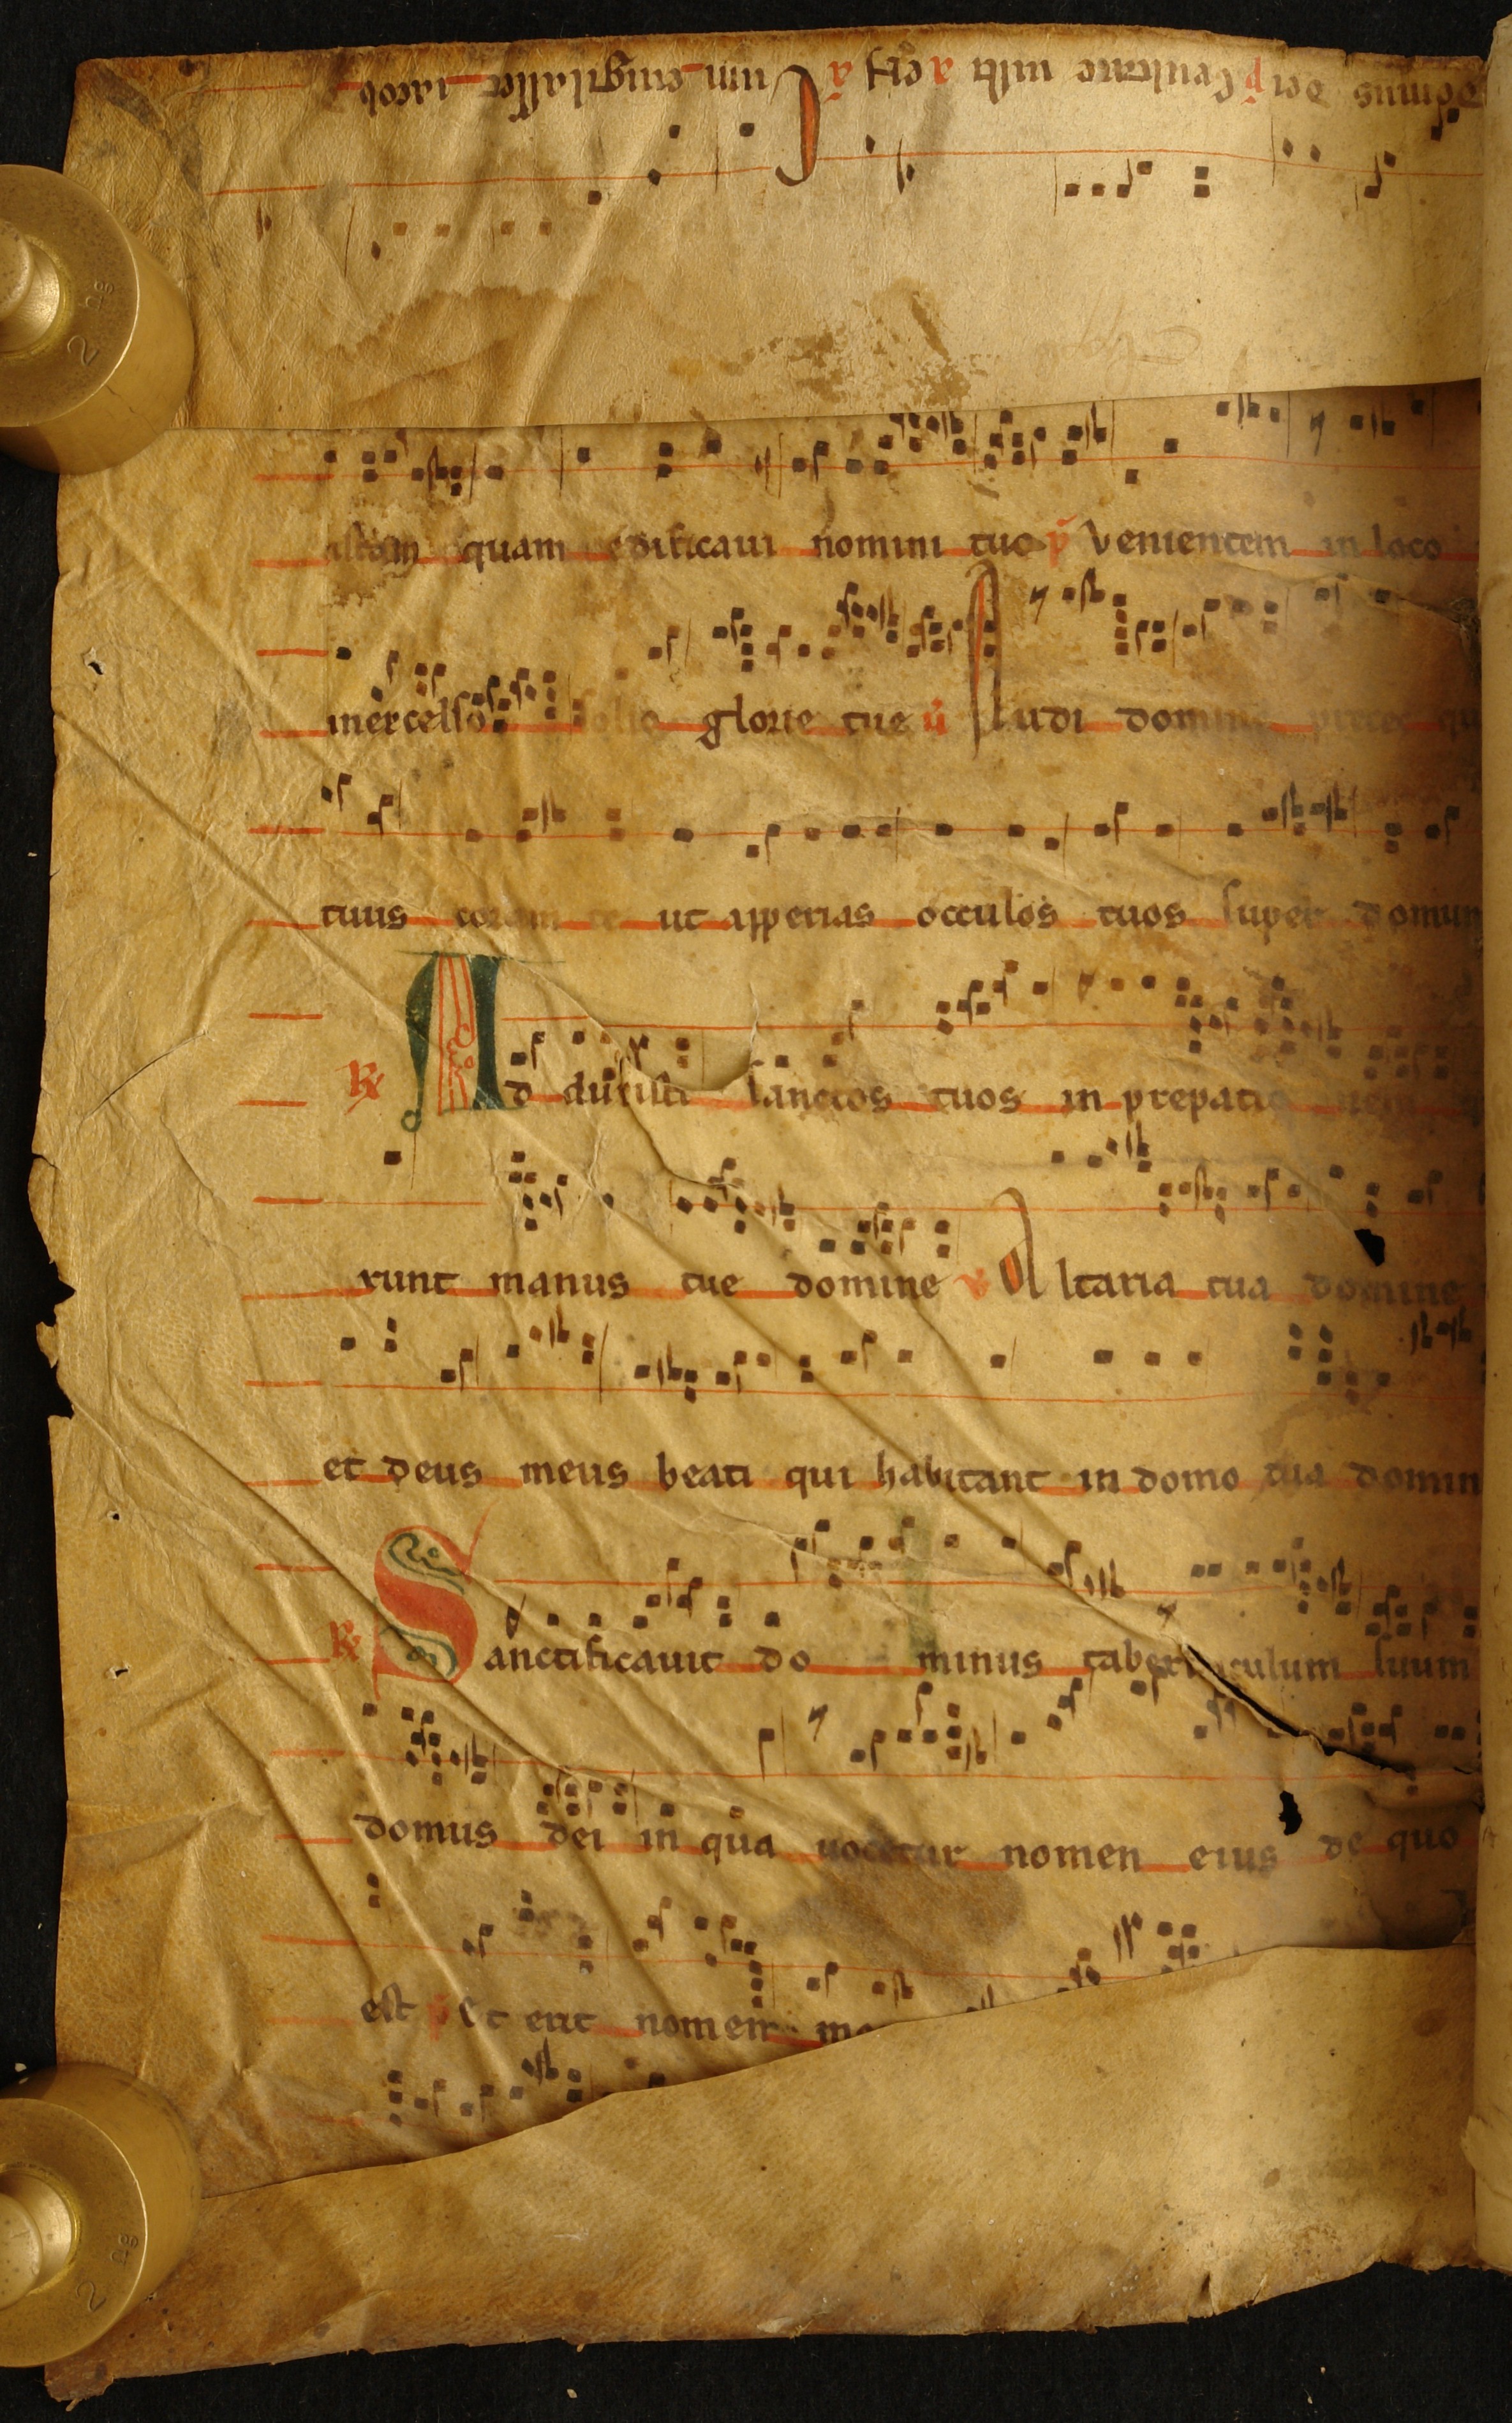 domus dei p̄ leuitate uisti a eıꝯ a̅ um euigilasset iacob
istam quam edificaui nomini tuo p̄ Venientem in loco
in excelso solio glorie tue v̄ Audi domine preces qu
tuus coram te ut apperias occulos tuos super domum
℟ Ad duxisti sanctos tuos in prepatio nem
runt manus tue domine v̄ Altaria tua domine
et deus meus beati qui habitant in domo tua domin
℟ Sanctificauit do minus taber culum suum
domus dei in qua uocetur nomen eius de quo
est p̄ Et erit nomen m
2 Kg
2 Kg